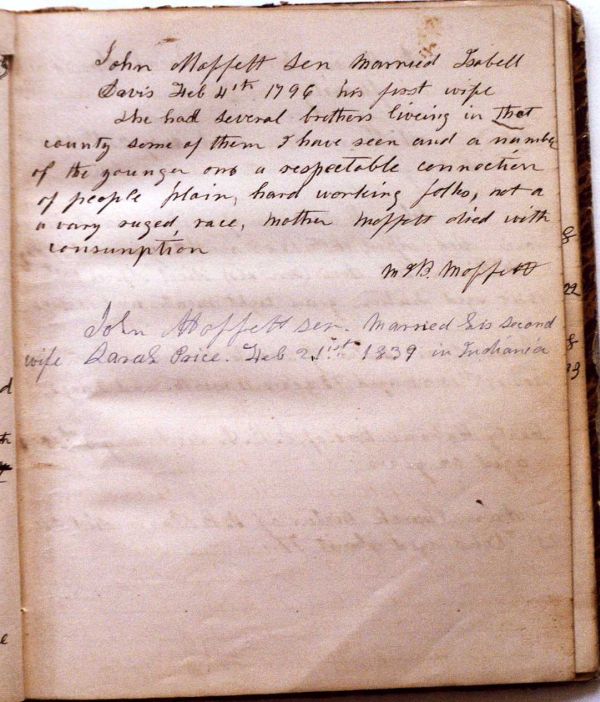 John Moffett sen married Isabell
Davis Feb 4th 1796 his first wife
she had several brothers liveing in that
county some of them I have seen and a number
of the younger ons a respectable connection
of people plain, hard working folks, not a
a vary ruged, race, mother Moffett died with
consumption
Moffett
John Moffett sen. Married his second
wife Sarah Price. Feb 21st 1839 in Indiania